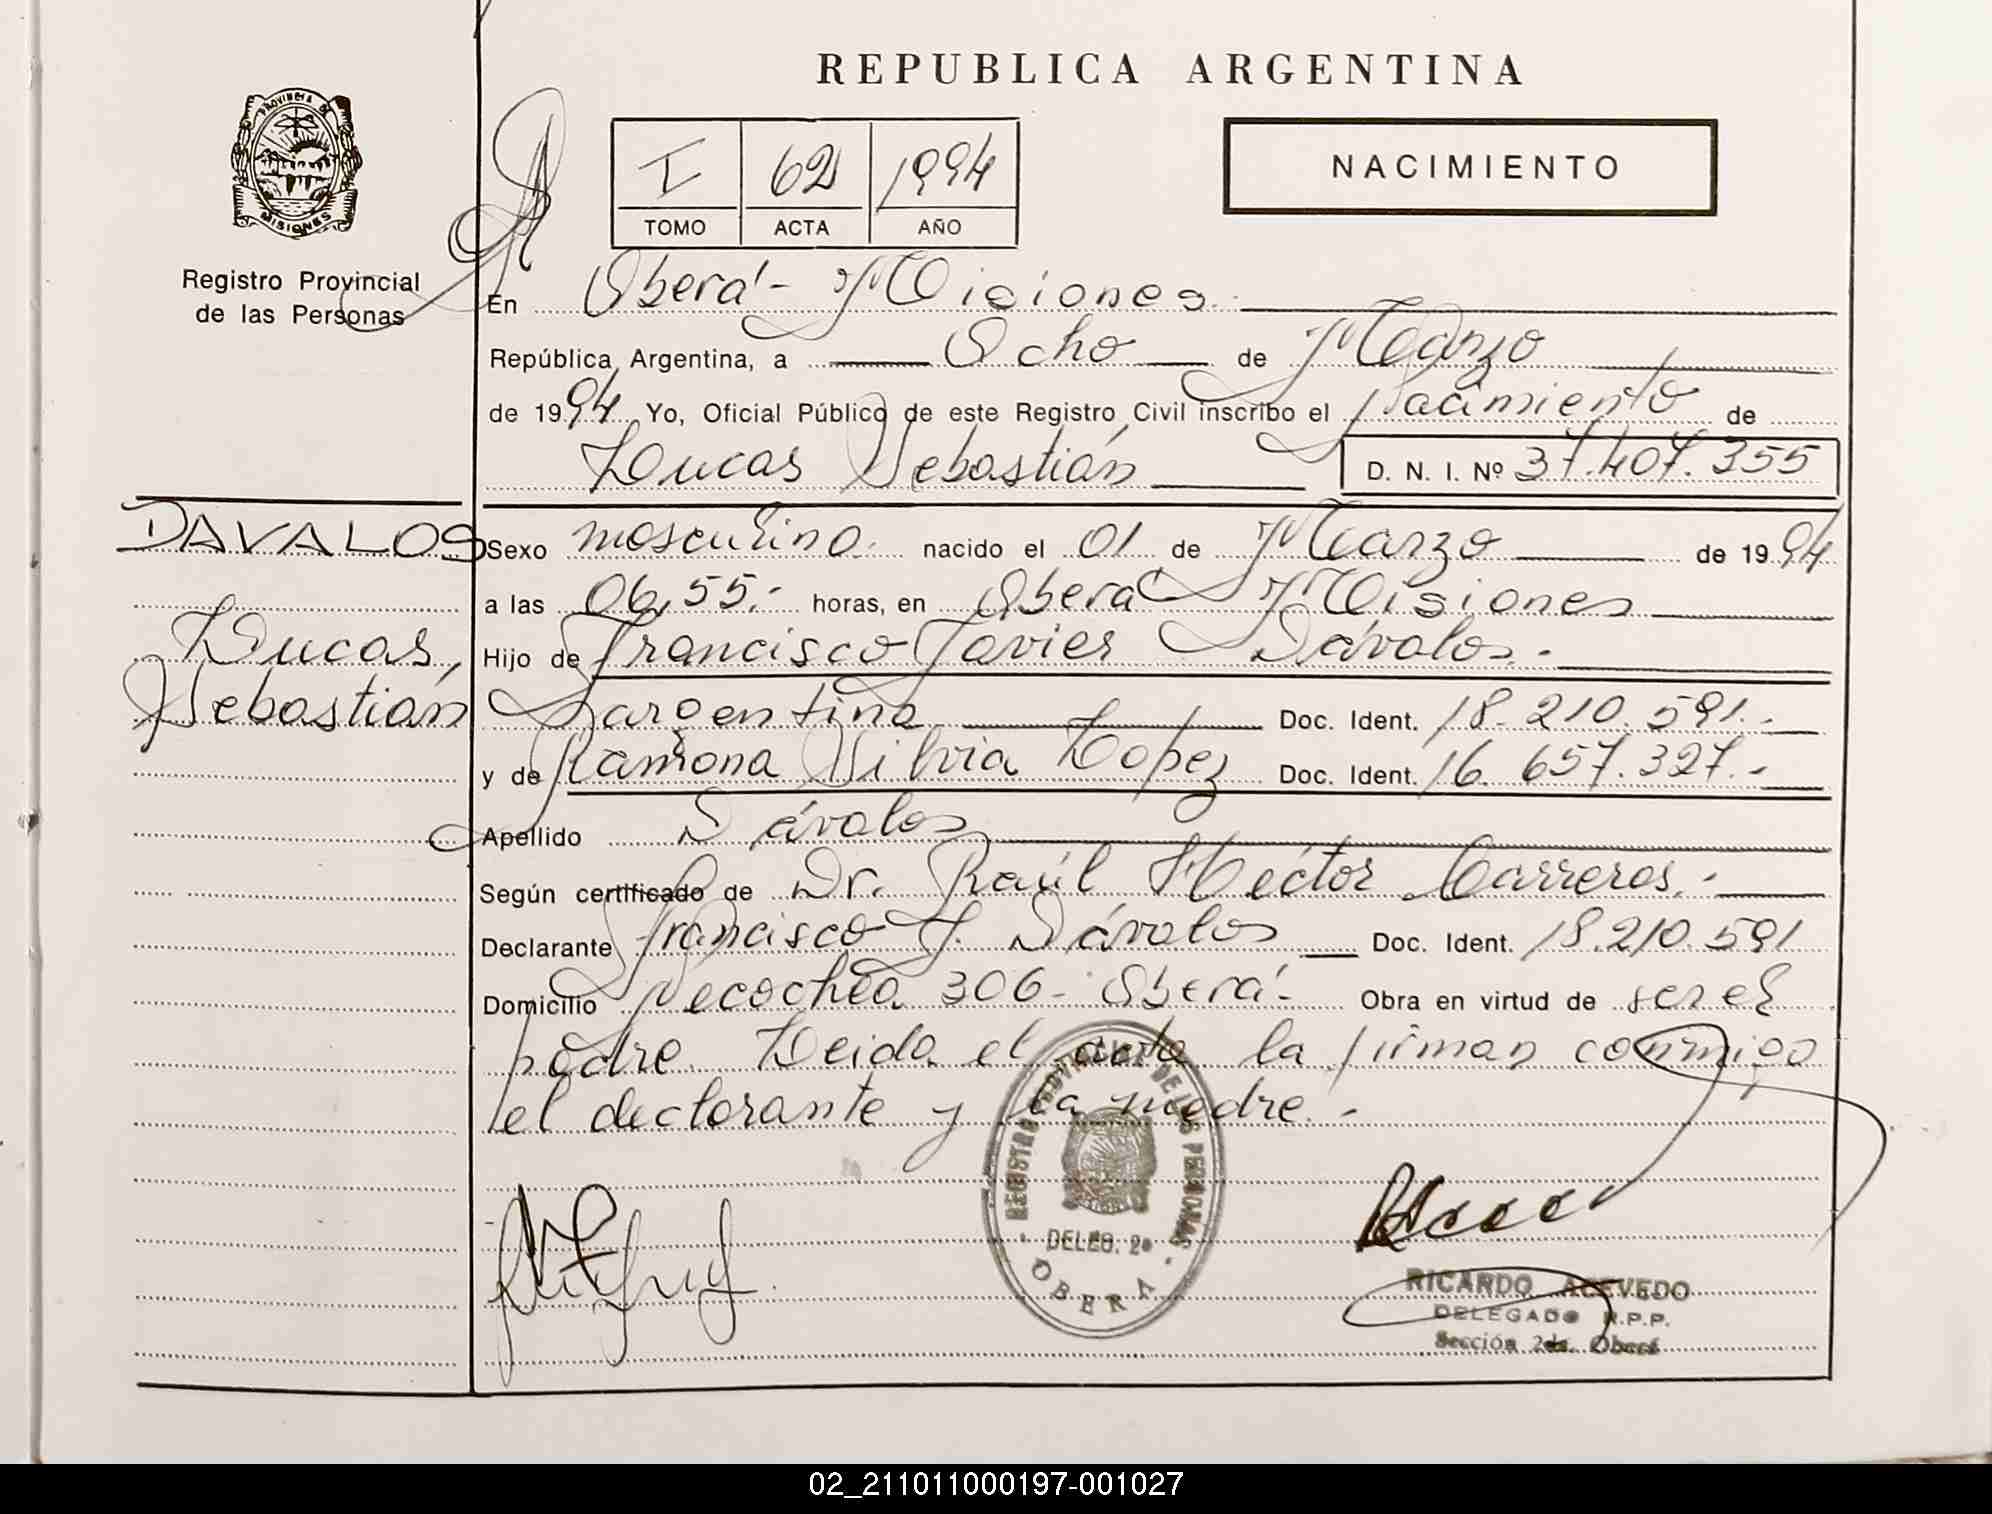 REPUBLICA ARGENTINA
PROVINCIA DE
MISIONES
Registro Provincial
de las Personas
I 62 1994
TOMO ACTA AÑO
NACIMIENTO
En Oberá - Misiones
República Argentina, a Ocho de Marzo
de 1994 Yo, Oficial Público de este Registro Civil inscribo el Nacimiento de
Lucas Sebastián D. N. I. Nº 37.407.355
DAVALOS
Lucas,
Sebastián
Sexo masculino. nacido el 01 de Marzo de 1994
a las 06,55.- horas, en Oberá Misiones
Hijo de Francisco Javier Dávalos.-
argentina Doc. Ident. 18.210.591.-
y de Ramona Silvia Lopez Doc. Ident. 16.657.327.-
Apellido Dávalos
Según certificado de Dr. Raúl Héctor Carreros.-
Declarante Francisco J. Dávalos Doc. Ident. 18.210.591
Domicilio Necochea 306 - Oberá - Obra en virtud de ser el
padre. Leida el acta la firman conmigo
el declarante y la madre.-
REGISTRO PROVINCIAL DE LAS PERSONAS
DELEG. 2ª
OBERA
RICARDO ACEVEDO
DELEGADO R.P.P.
Sección 2da. Oberá
02_211011000197-001027